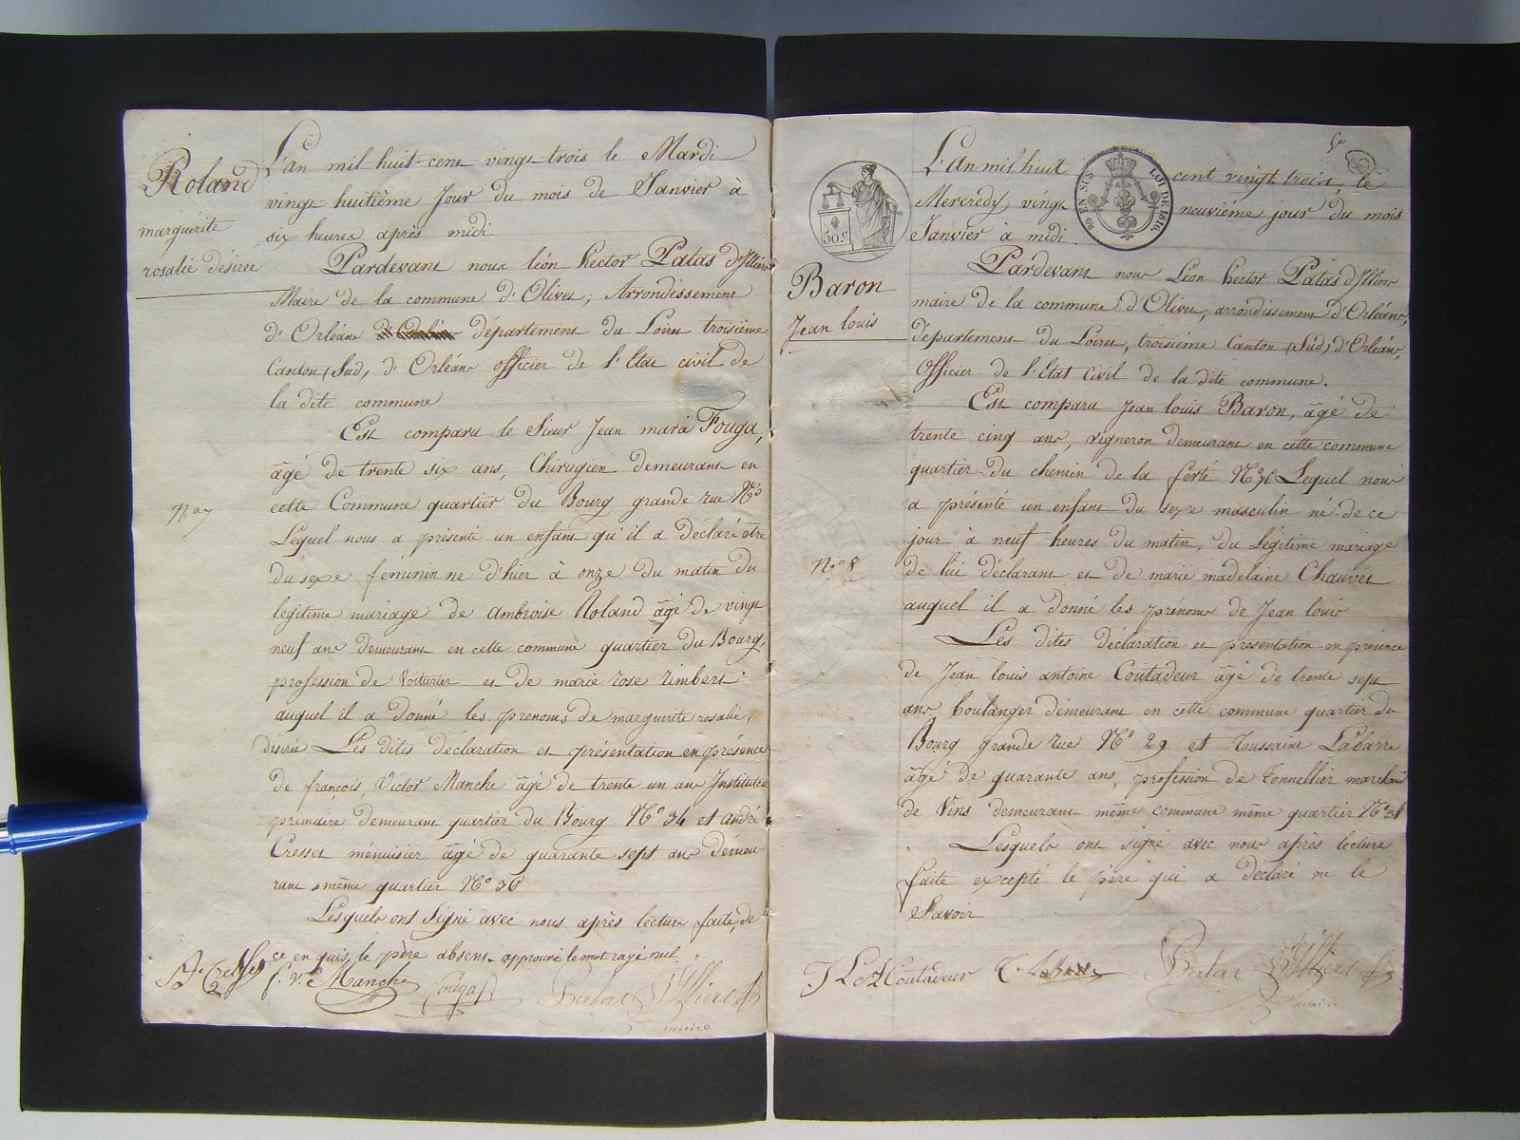 Roland
marguerite
rosalie desirée
L'an mil huit cent vingt trois le Mardi
vingt huitième Jour du mois de Janvier à
six heures après midi
Pardevant nous léon hector Patas d'Illiers
Maire de la commune d'Olivet, Arrondissement
d'Orléans département du Loiret troisième
Canton (Sud) d'Orléans officier de l'Etat civil de
la dite commune
Est comparu le Sieur Jean maria Fouga,
âgé de trente six ans, Chirugien demeurant en
cette Commune quartier du Bourg grande rue
Lequel nous a présenté un enfant qu'il a déclaré être
du sexe feminin né d'hier à onze du matin du
légitime mariage de ambroise Roland âgé de vingt
neuf ans demeurant en cette commune quartier du Bourg,
profession de Voiturier et de marie rose rimbert
auquel il a donné les prenoms de marguerite rosalie,
désiré Les dites déclaration et présentation en présence
de françois Victor Manche âgé de trente un ans Instituteur
primaire demeurant quartier du Bourg N° 34 et andré
Cresset ménuisier âgé de quarante sept ans demeu-
rant même quartier N° 36
Lesquels ont signé avec nous après lecture faite, de
ce en quis, le père absent. approuvé le mot rayé nul.
f. v. Manche Fougas Patas d'Illiers
maire
50 c
EN SUS LOI DE 1816
L'An mil huit cent vingt trois, le
Mercredy vingt neuvième jour du mois
Janvier a midi.
Baron
Jean louis
Pardevant nous Léon hector Patas d'Illiers
maire de la commune d'Olivet, arrondissement d'Orléans,
département du Loiret, troisième Canton (Sud) d'Orléans,
Officier de l'Etat Civil de la dite commune.
Est comparu Jean louis Baron, âgé de
trente cinq ans, vigneron demeurant en cette commune
quartier du chemin de la ferté Lequel nous
a présenté un enfant du sexe masculin né de ce
jour à neuf heures du matin, du légitime mariage
N° 8
de lui déclarant et de marie madelaine Chauvet
auquel il a donné les prénoms de Jean louis
Les dites déclaration et présentation en présence
de Jean louis antoine Coutadeur âgé de trente sept
ans boulanger demeurant en cette commune quartier du
Bourg grande rue N° 29 et Toussaint Labarre
âgé de quarante ans, profession de Tonnellier marchand
de Vins demeurant même commune même quartier N° 31
Lesquels ont signé avec nous après lecture
faite excepté le père qui a déclaré ne le
Savoir
J L A Coutadeur T. Labarre Patas d'Illiers
maire